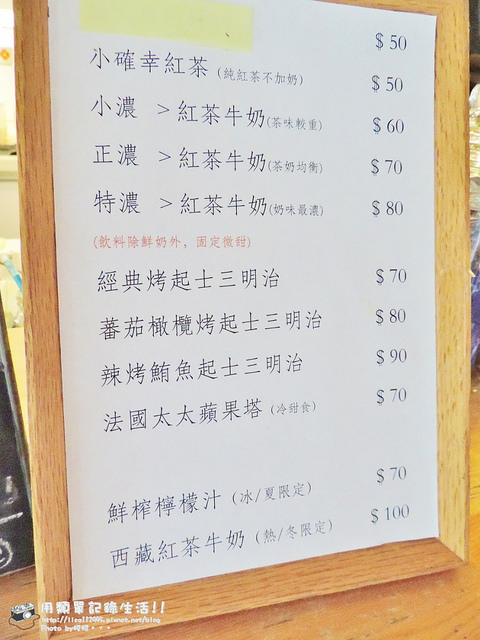 $ 50
小確幸紅茶 (純紅茶不加奶) $ 50
小濃 > 紅茶牛奶(茶味較重) $ 60
正濃 > 紅茶牛奶(茶奶均衡) $ 70
特濃 > 紅茶牛奶(奶味最濃) $ 80
(飲料除鮮奶外，固定微甜)
經典烤起士三明治 $ 70
蕃茄橄欖烤起士三明治 $ 80
辣烤鮪魚起士三明治 $ 90
法國太太蘋果塔 (冷甜食) $ 70
鮮榨檸檬汁 (冰/夏限定) $ 70
西藏紅茶牛奶 (熱/冬限定) $ 100
用類單記錄生活!!